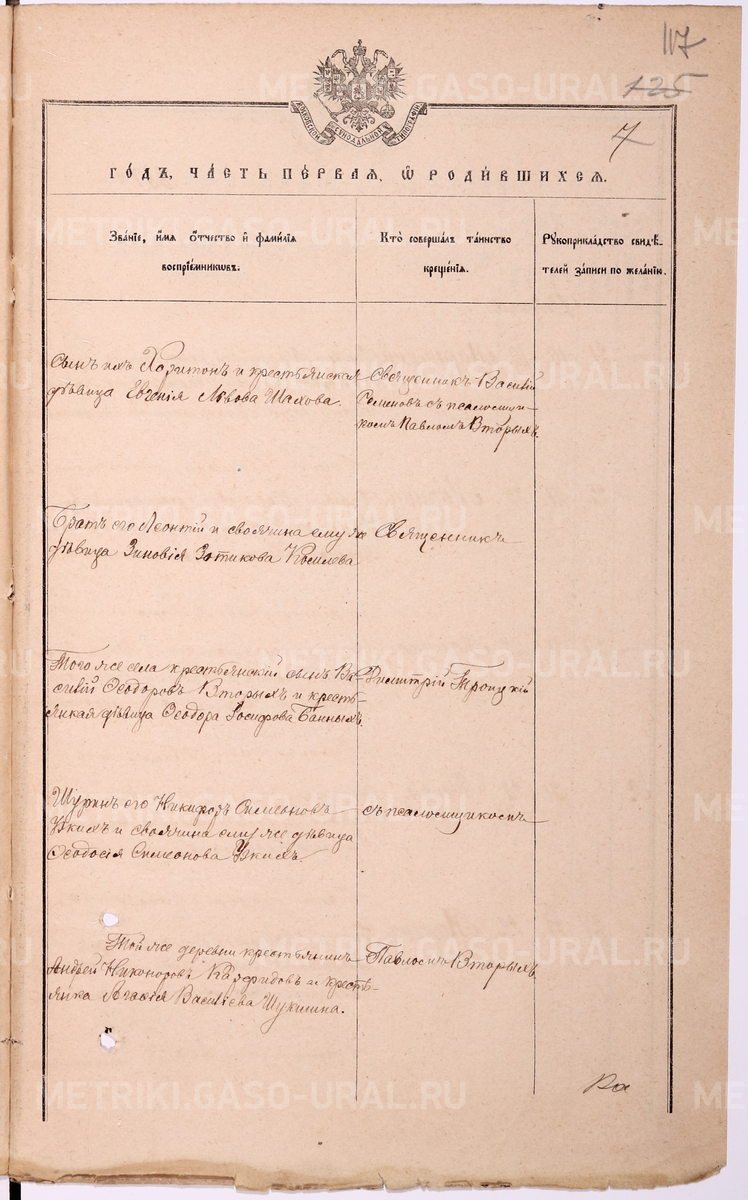 117
125
7
МОСКОВСКОЙ СѴНОДАЛЬНОЙ ТИПОГРАФІИ
ГОДЪ, ЧАСТЬ ПЕРВАЯ, Ѡ РОДИВШИХСЯ.
Званіе, имя отчество и фамилія
воспріемниковъ.
Кто совершалъ таинство
крещенія.
Рукоприкладство свидѣ-
телей записи по желанію.
Сынъ ихъ Харитонъ и крестьянская
дѣвица Евгенія Львова Шахова.
Священникъ Василій
Семеновъ съ псаломщи-
комъ Павломъ Вторыхъ.
Братъ его Леонтій и своячина ему же
дѣвица Зиновія Зотикова
Священникъ
Того же села крестьянскій сынъ Ва-
силій Ѳеодоровъ Вторыхъ и кресть-
янкая дѣвица Ѳеодора Іосифова Банныхъ.
Димитрій Троицкій
Шуринъ его Никифоръ Симеоновъ
Узкихъ и своячина ему же дѣвица
Ѳеодосія Симеонова Узкихъ.
съ псаломщикомъ
Той же деревни крестьянинъ
Андрей Никоноровъ и кресть-
янка Агафія Васильева Шукшина.
Павломъ Вторыхъ
METRIKI.GASO-URAL.RU